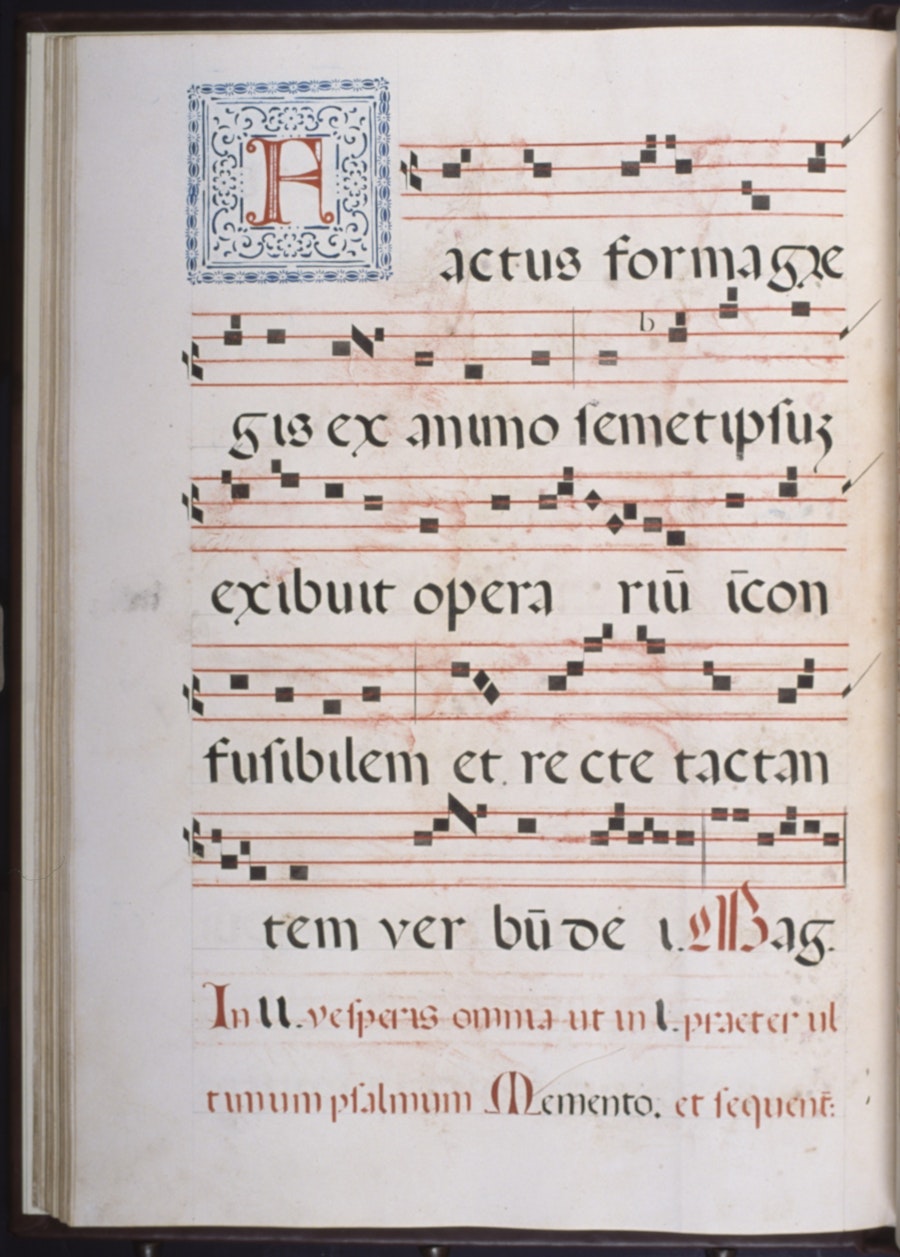 Factus forma gre
gis ex animo semetipsuz
exibuit opera riū īcon
fusibilem et recte tactan
tem ver bū de i. Mag.
In II. vesperis omnia ut in I. praeter ul
timum psalmum Memento. et sequent: